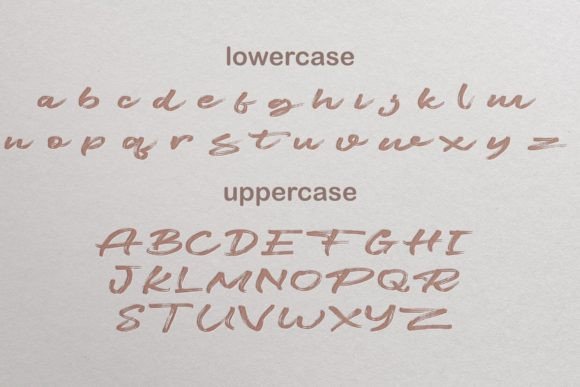 lowercase
a b c d e f g h i j k l m
n o p q r s t u v w x y z
uppercase
A B C D E F G H I
J K L M N O P Q R
S T U V W X Y Z